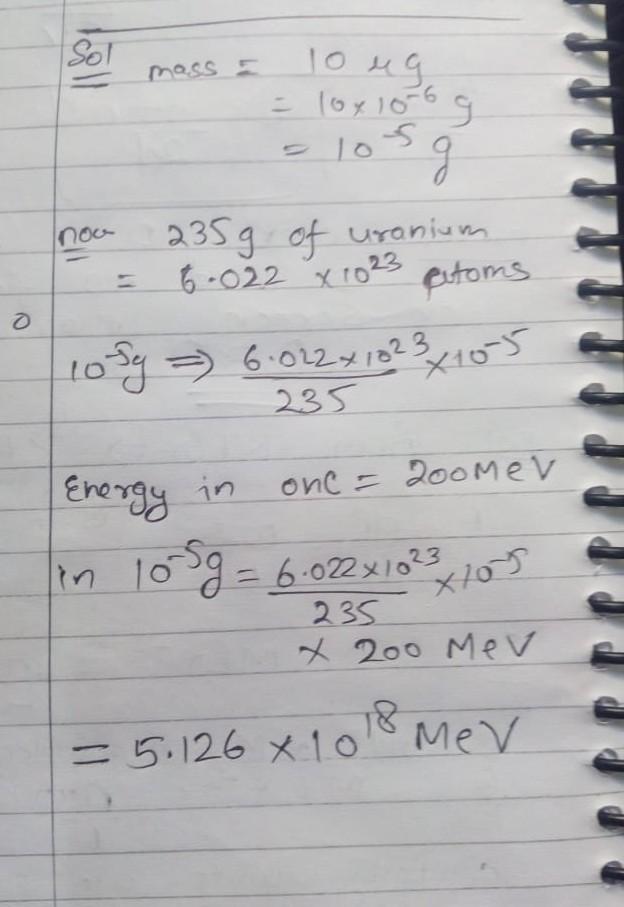 Sol mass = 10 μg
= 10×10⁻⁶ g
= 10⁻⁵ g
now 235g of uranium
= 6.022 ×10²³ atoms
10⁻⁵g ⇒ 6.022×10²³/235 ×10⁻⁵
Energy in one = 200MeV
in 10⁻⁵g = 6.022×10²³/235 ×10⁻⁵
× 200 MeV
= 5.126 ×10¹⁸ MeV